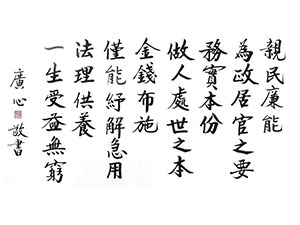 親民廉能
為政居官之要
務實本份
做人處世之本
金錢布施
僅能紓解急用
法理供養
一生受益無窮
廣心 敬書